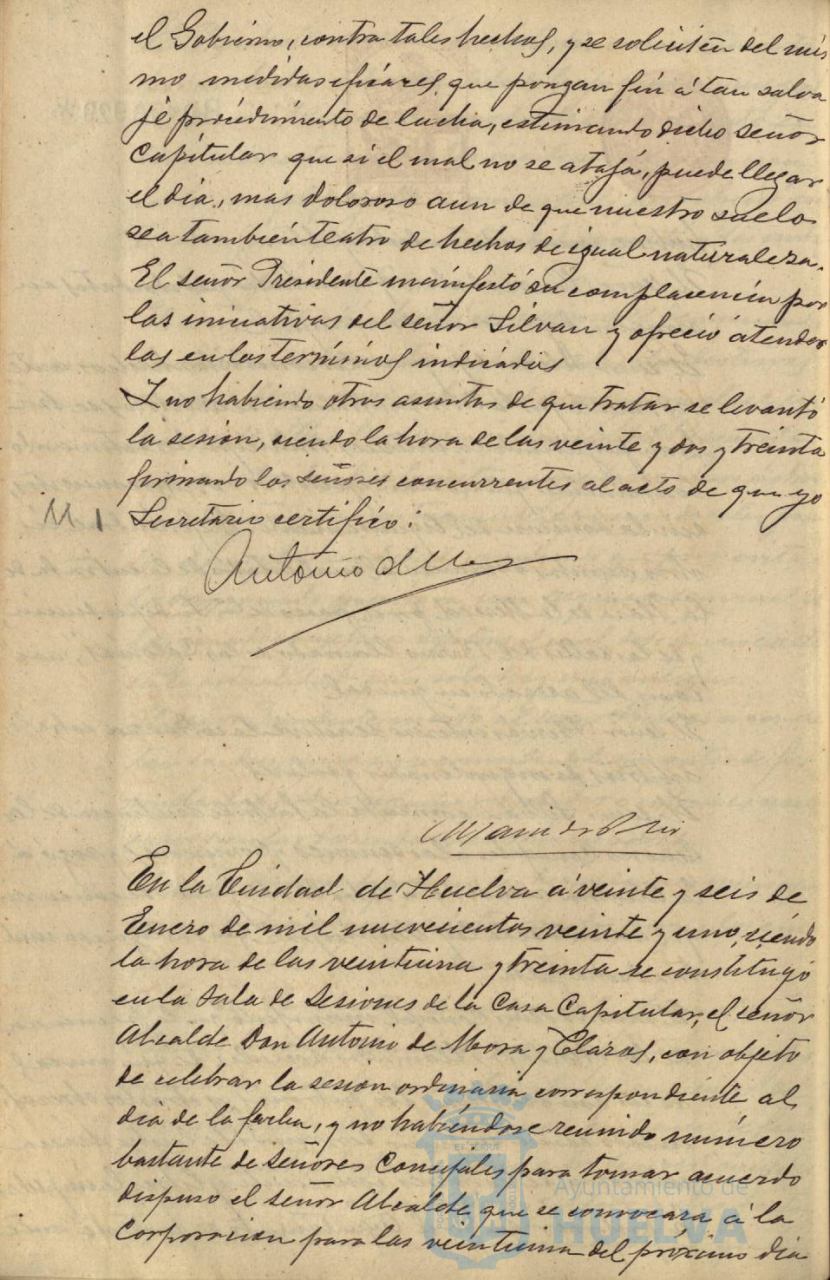 el Gobierno, contra tales hechos, y se soliciten del mis
mo medidas eficaces, que pongan fin á tan salva
je procedimiento de lucha, estimando dicho señor
Capitular que si el mal no se ataja, puede llegar
el dia, mas doloroso aun de que nuestro suelo
sea tambien teatro de hechos de igual naturaleza.
El señor Presidente manifestó su complacencia por
las iniciativas del señor Silvan y ofreció atender
las en los terminos indicados
Y no habiendo otros asuntos de que tratar se levantó
la sesión, siendo la hora de las veinte y dos y treinta
firmando los señores concurrentes al acto de que yo
Secretario certifico:
Antonio de
En la Ciudad de Huelva á veinte y seis de
Enero de mil nuevecientos veinte y uno, siendo
la hora de las veintiuna y treinta se constituyó
en la Sala de Sesiones de la Casa Capitular, el señor
Alcalde Don Antonio de Mora y Claros, con objeto
de celebrar la sesión ordinaria correspondiente al
dia de la fecha, y no habiéndose reunido número
bastante de señores Concejales para tomar acuerdo
dispuso el señor Alcalde que se convocara á la
Corporacion para las veintiuna del próximo dia
Ayuntamiento de
HUELVA